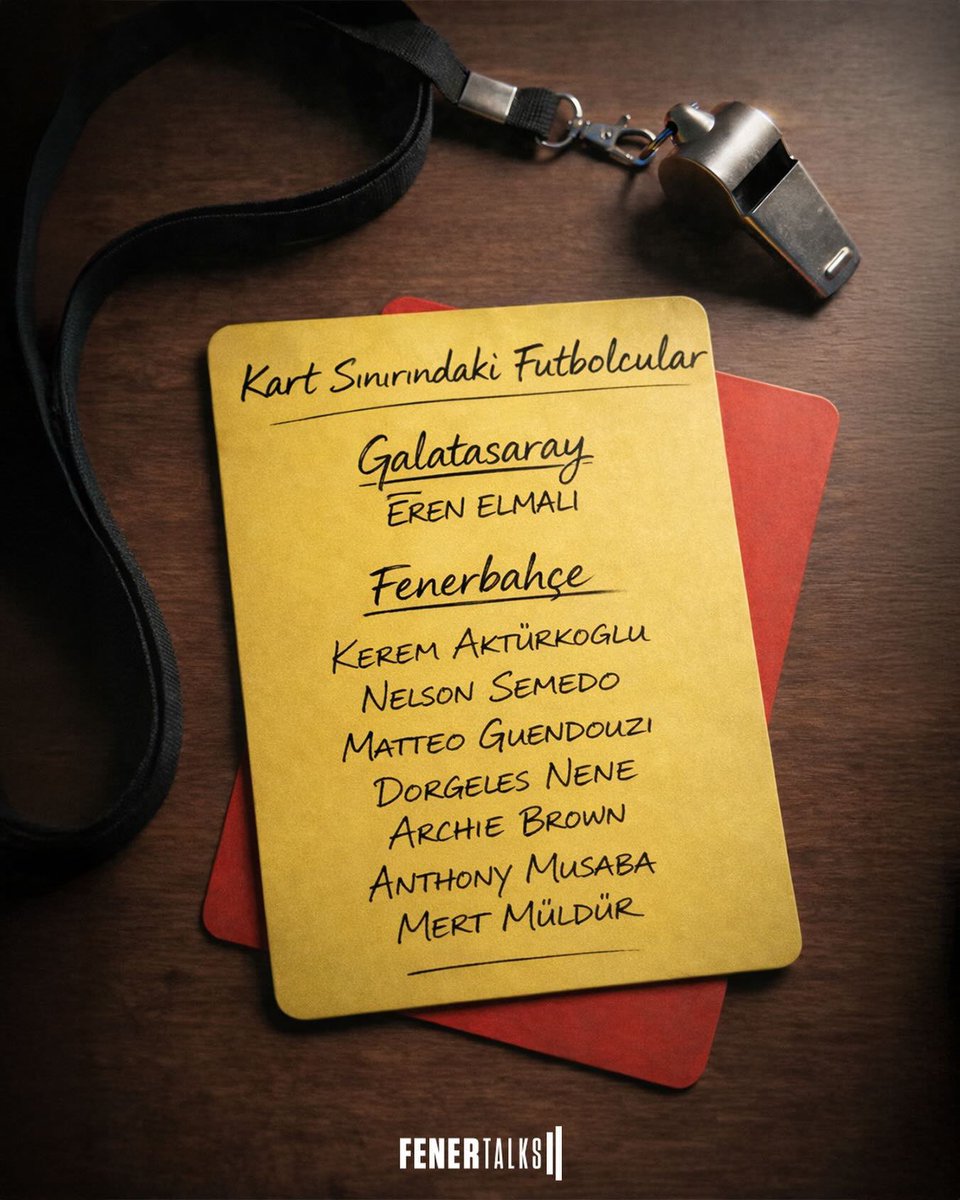 Kart Sınırındaki Futbolcular
Galatasaray
EREN ELMALI
Fenerbahçe
KEREM AKTÜRKOGLU
NELSON SEMEDO
MATTEO GUENDOUZI
DORGELES NENE
ARCHIE BROWN
ANTHONY MUSABA
MERT MÜLDÜR
FENERTALKS